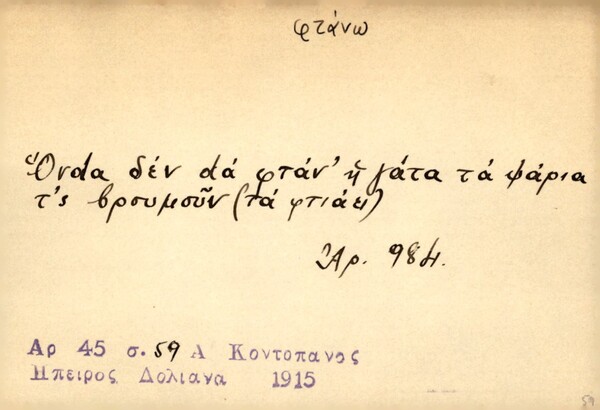 φτάνω
Ὅνdα δέν dά φτάν' ἡ γάτα τά ψάρια
τ'ς βρουμοῦν (τά φτιάει)
Ἀρ. 984.
Αρ 45 σ. 59 Α Κοντοπανος
Ηπειρος Δολιανα 1915
59